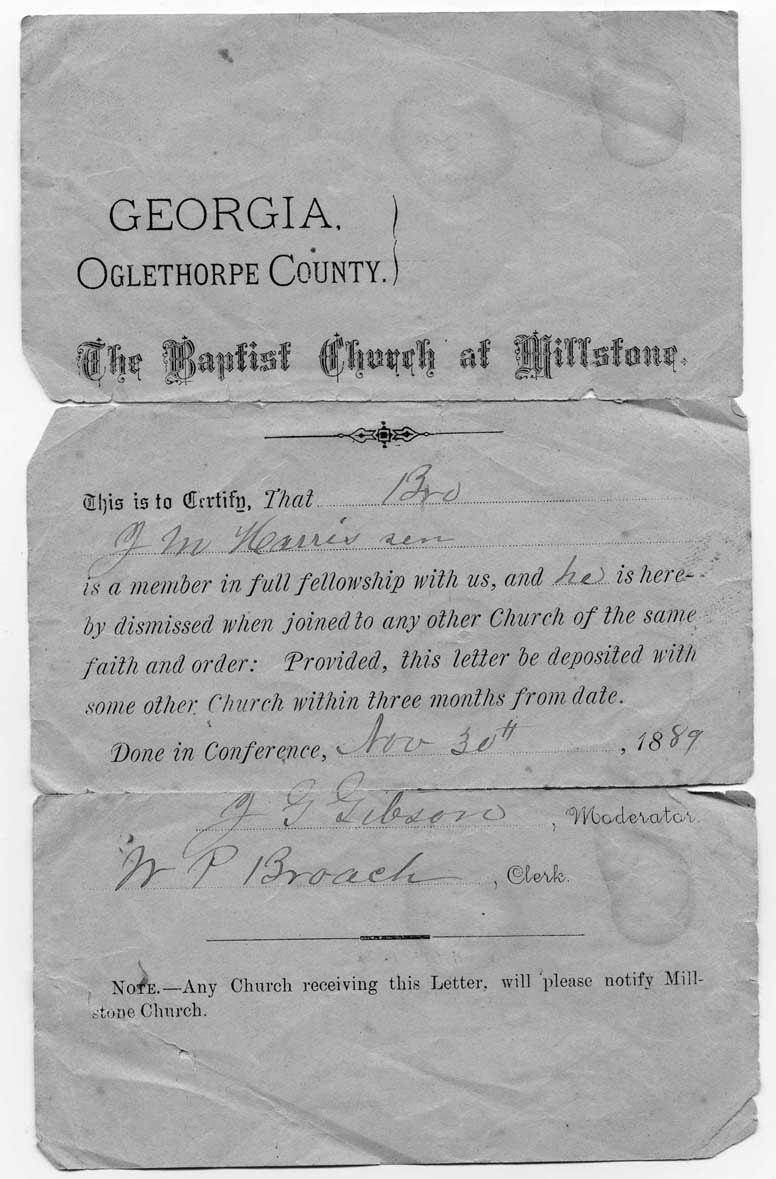 GEORGIA,
OGLETHORPE COUNTY.
The Baptist Church at Millstone.
This is to Certify, That Bro
J M Harris sen
is a member in full fellowship with us, and he is here-
by dismissed when joined to any other Church of the same
faith and order: Provided, this letter be deposited with
some other Church within three months from date.
Done in Conference, Nov 30th, 1889
J G Gibson, Moderator.
W P Broach, Clerk.
NOTE.—Any Church receiving this Letter, will please notify Mill-
stone Church.